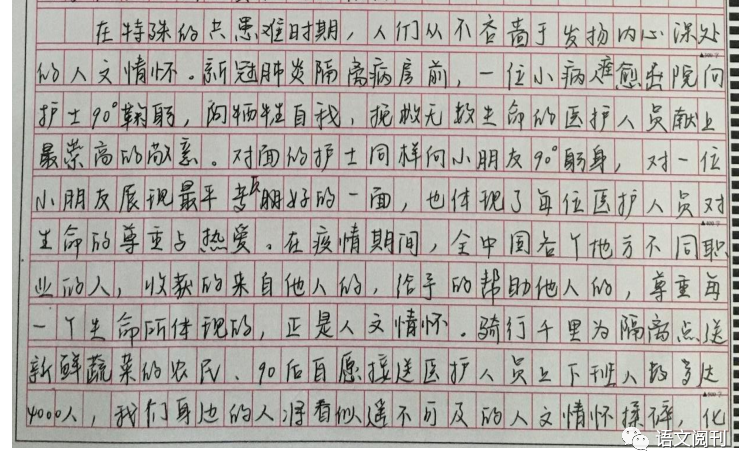 在特殊的共患难时期，人们从不吝啬于发扬内心深处
的人文情怀。新冠肺炎隔离病房前，一位小病难愈出院向
护士90°鞠躬，向牺牲自我，挽救无数生命的医护人员献上
最崇高的敬意。对面的护士同样向小朋友90°躬身，对一位
小朋友展现最平美好的一面，也体现了每位医护人员对
生命的尊重与热爱。在疫情期间，全中国各个地方不同职
业的人，收获的来自他人的，给予的帮助他人的，尊重每
一个生命所体现的，正是人文情怀。骑行千里为隔离点送
新鲜蔬菜的农民、90后自愿接送医护人员上下班人数多达
4000人，我们身边的人将看似遥不可及的人文情怀揉碎，化
语文阅刊